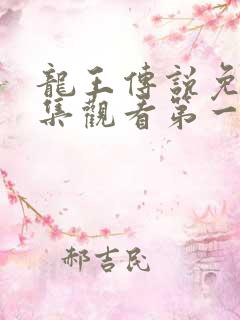 龍王傳說免
集觀看第一
郝吉民